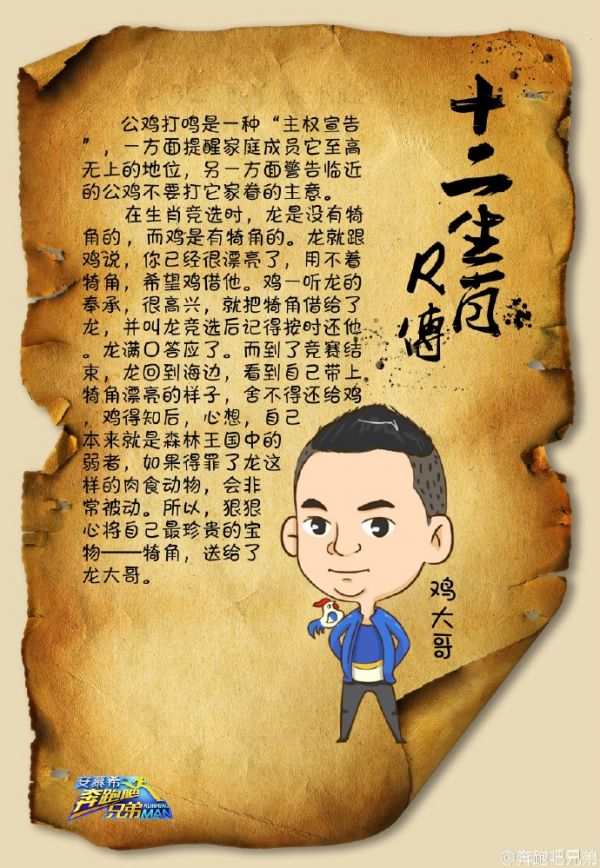 十二生肖
R傅
公鸡打鸣是一种“主权宣告
”，一方面提醒家庭成员它至高
无上的地位，另一方面警告临近
的公鸡不要打它家眷的主意。
在生肖竞选时，龙是没有犄
角的，而鸡是有犄角的。龙就跟
鸡说，你已经很漂亮了，用不着
犄角，希望鸡借他。鸡一听龙的
奉承，很高兴，就把犄角借给了
龙，并叫龙竞选后记得按时还他
。龙满口答应了。而到了竞赛结
束，龙回到海边，看到自己带上
犄角漂亮的样子，舍不得还给鸡
，鸡得知后，心想，自己
本来就是森林王国中的
弱者，如果得罪了龙这
样的肉食动物，会非
常被动。所以，狠狠
心将自己最珍贵的宝
物——犄角，送给了
龙大哥。
鸡大哥
安慕希
奔跑吧
兄弟
RUNNING MAN
@奔跑吧兄弟